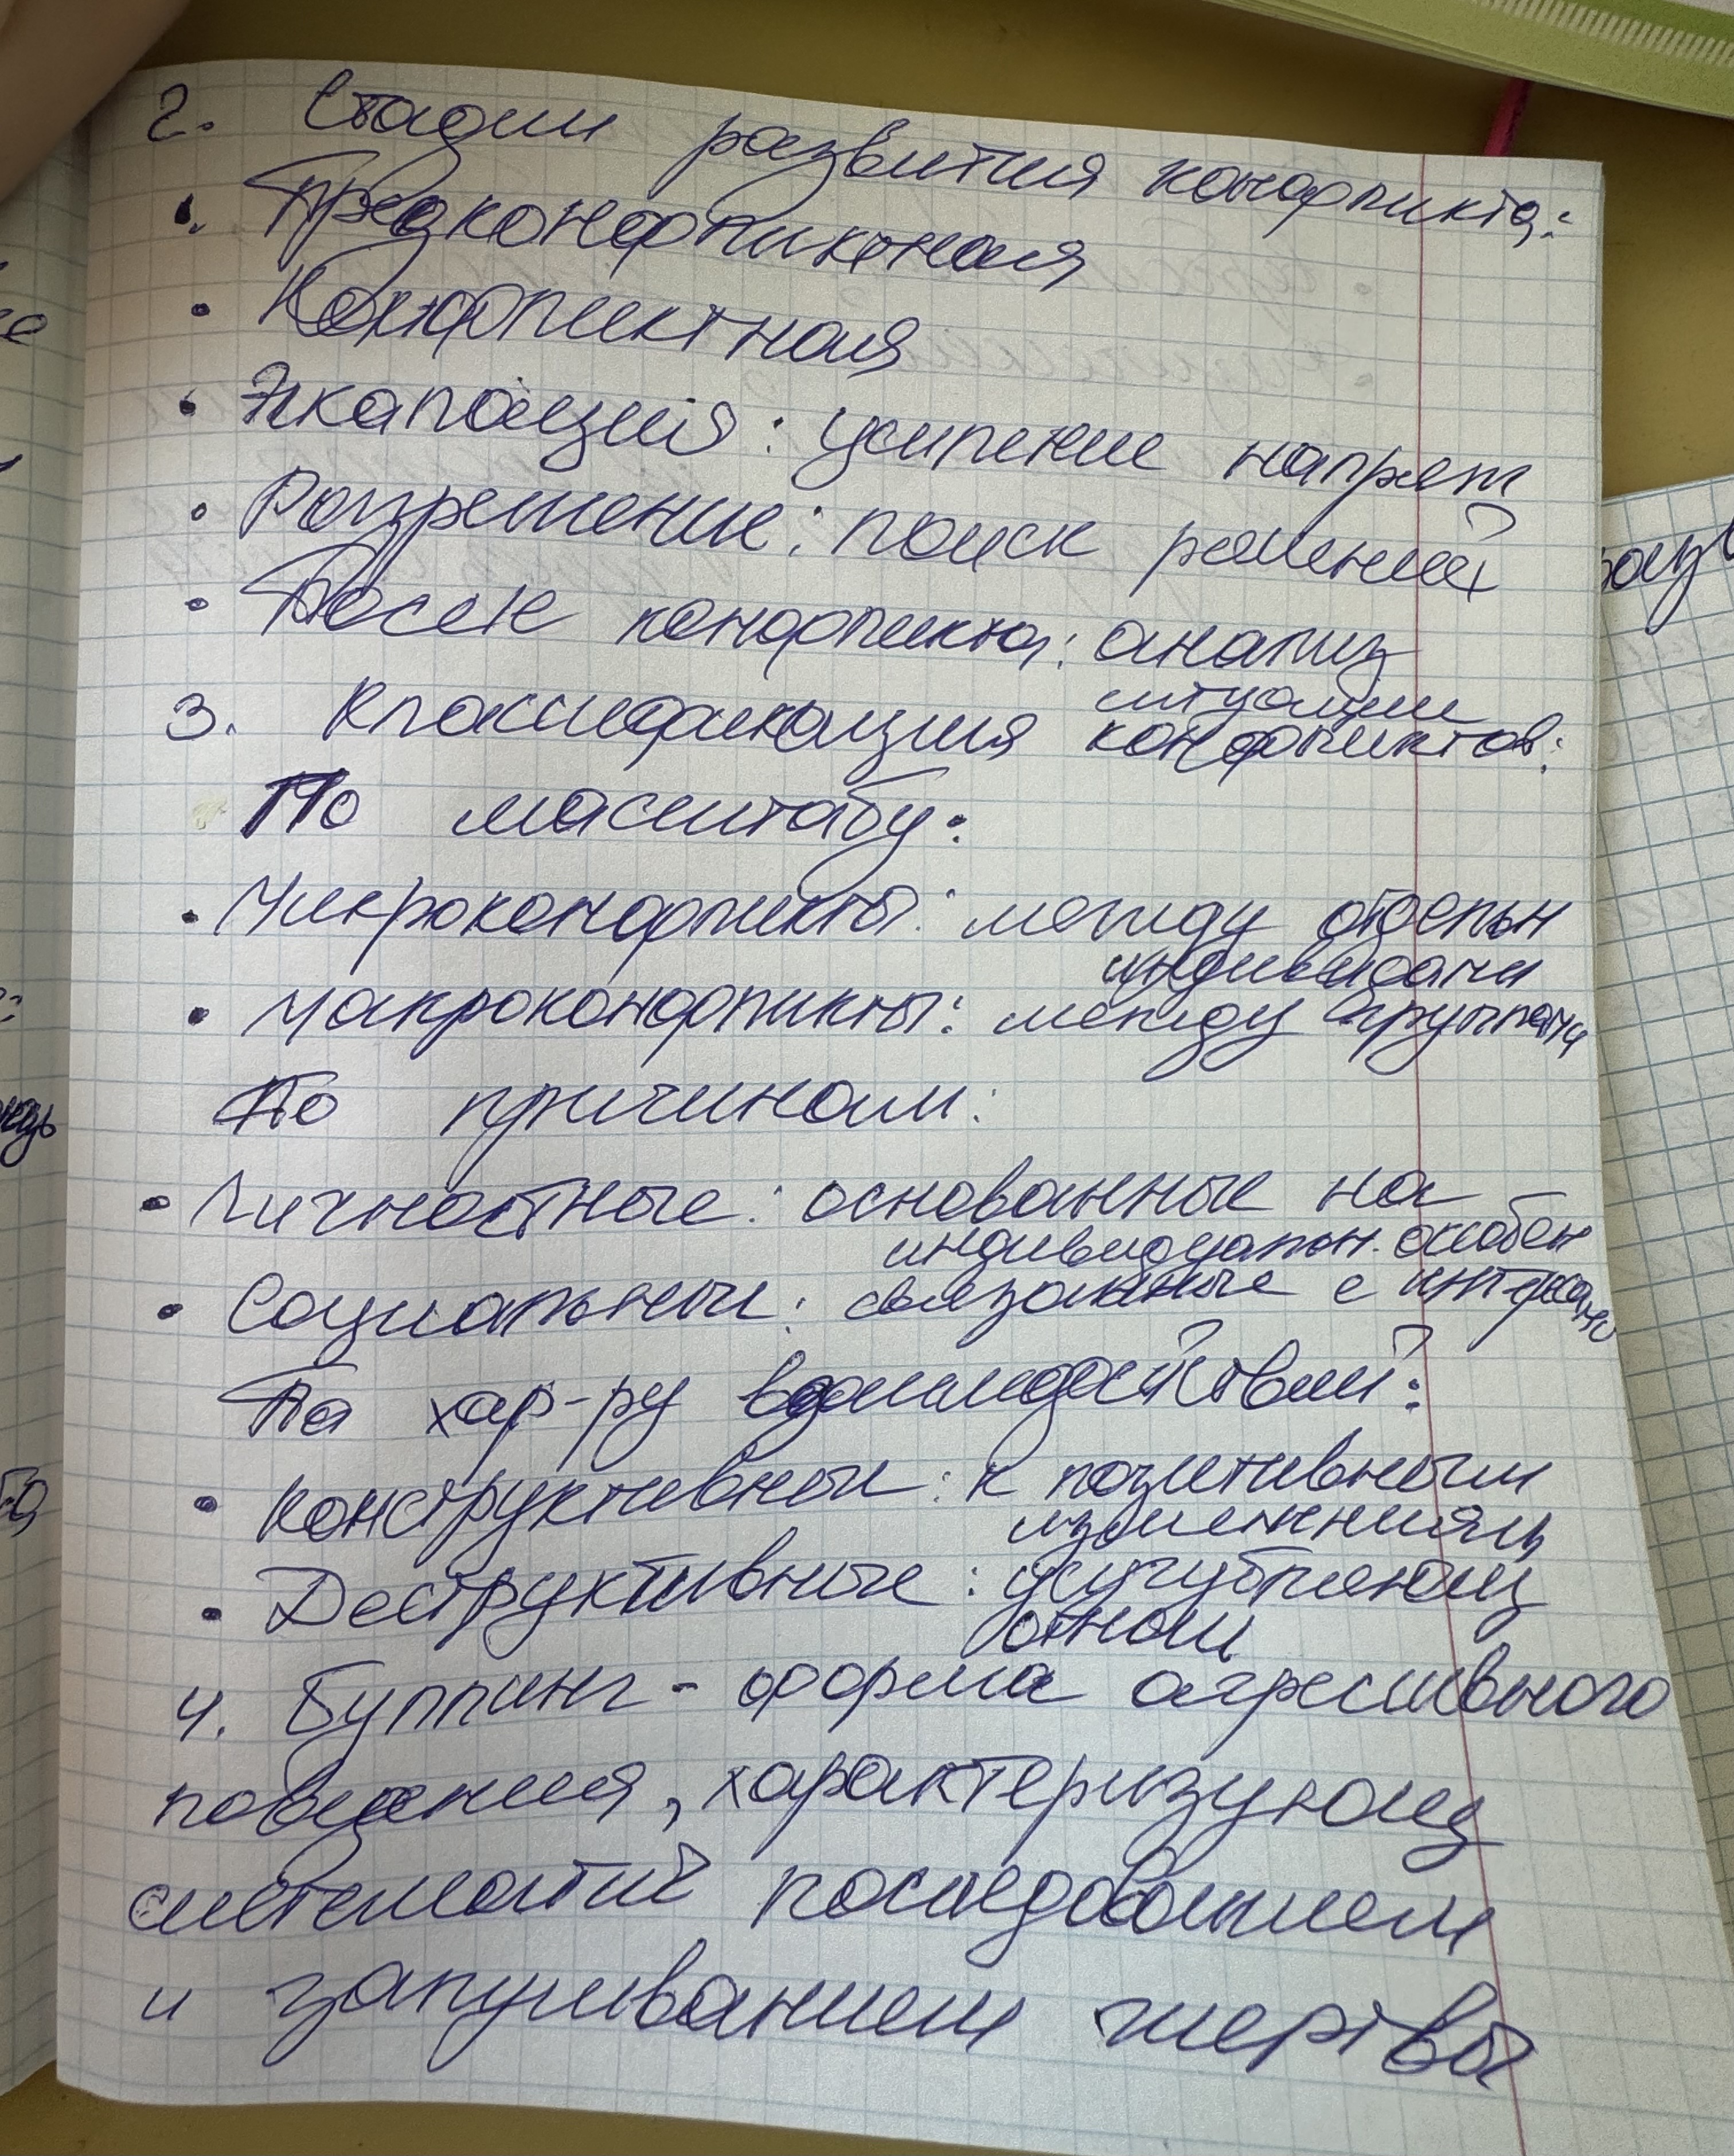 2. Стадии развития конфликта:
• Предконфликтная
• Конфликтная
• Экалация: усиление напряж
• Разрешение: поиск решений
• После конфликта: анализ
ситуации
3. Классификация конфликтов:
По масштабу:
• Микроконфликты: между отдельн
индивидами
• Макроконфликты: между группами
По причинам:
• Личностные: основанные на
индивидуальн. особен
• Социальные: связанные с
По хар-ру взаимодействий:
• Конструктивные: к позитивным
изменениям
• Деструктивные: усугублениям
отнош
4. Буллинг - форма агрессивного
поведения, характеризующ
систематич последованием
и запугиванием жертвы